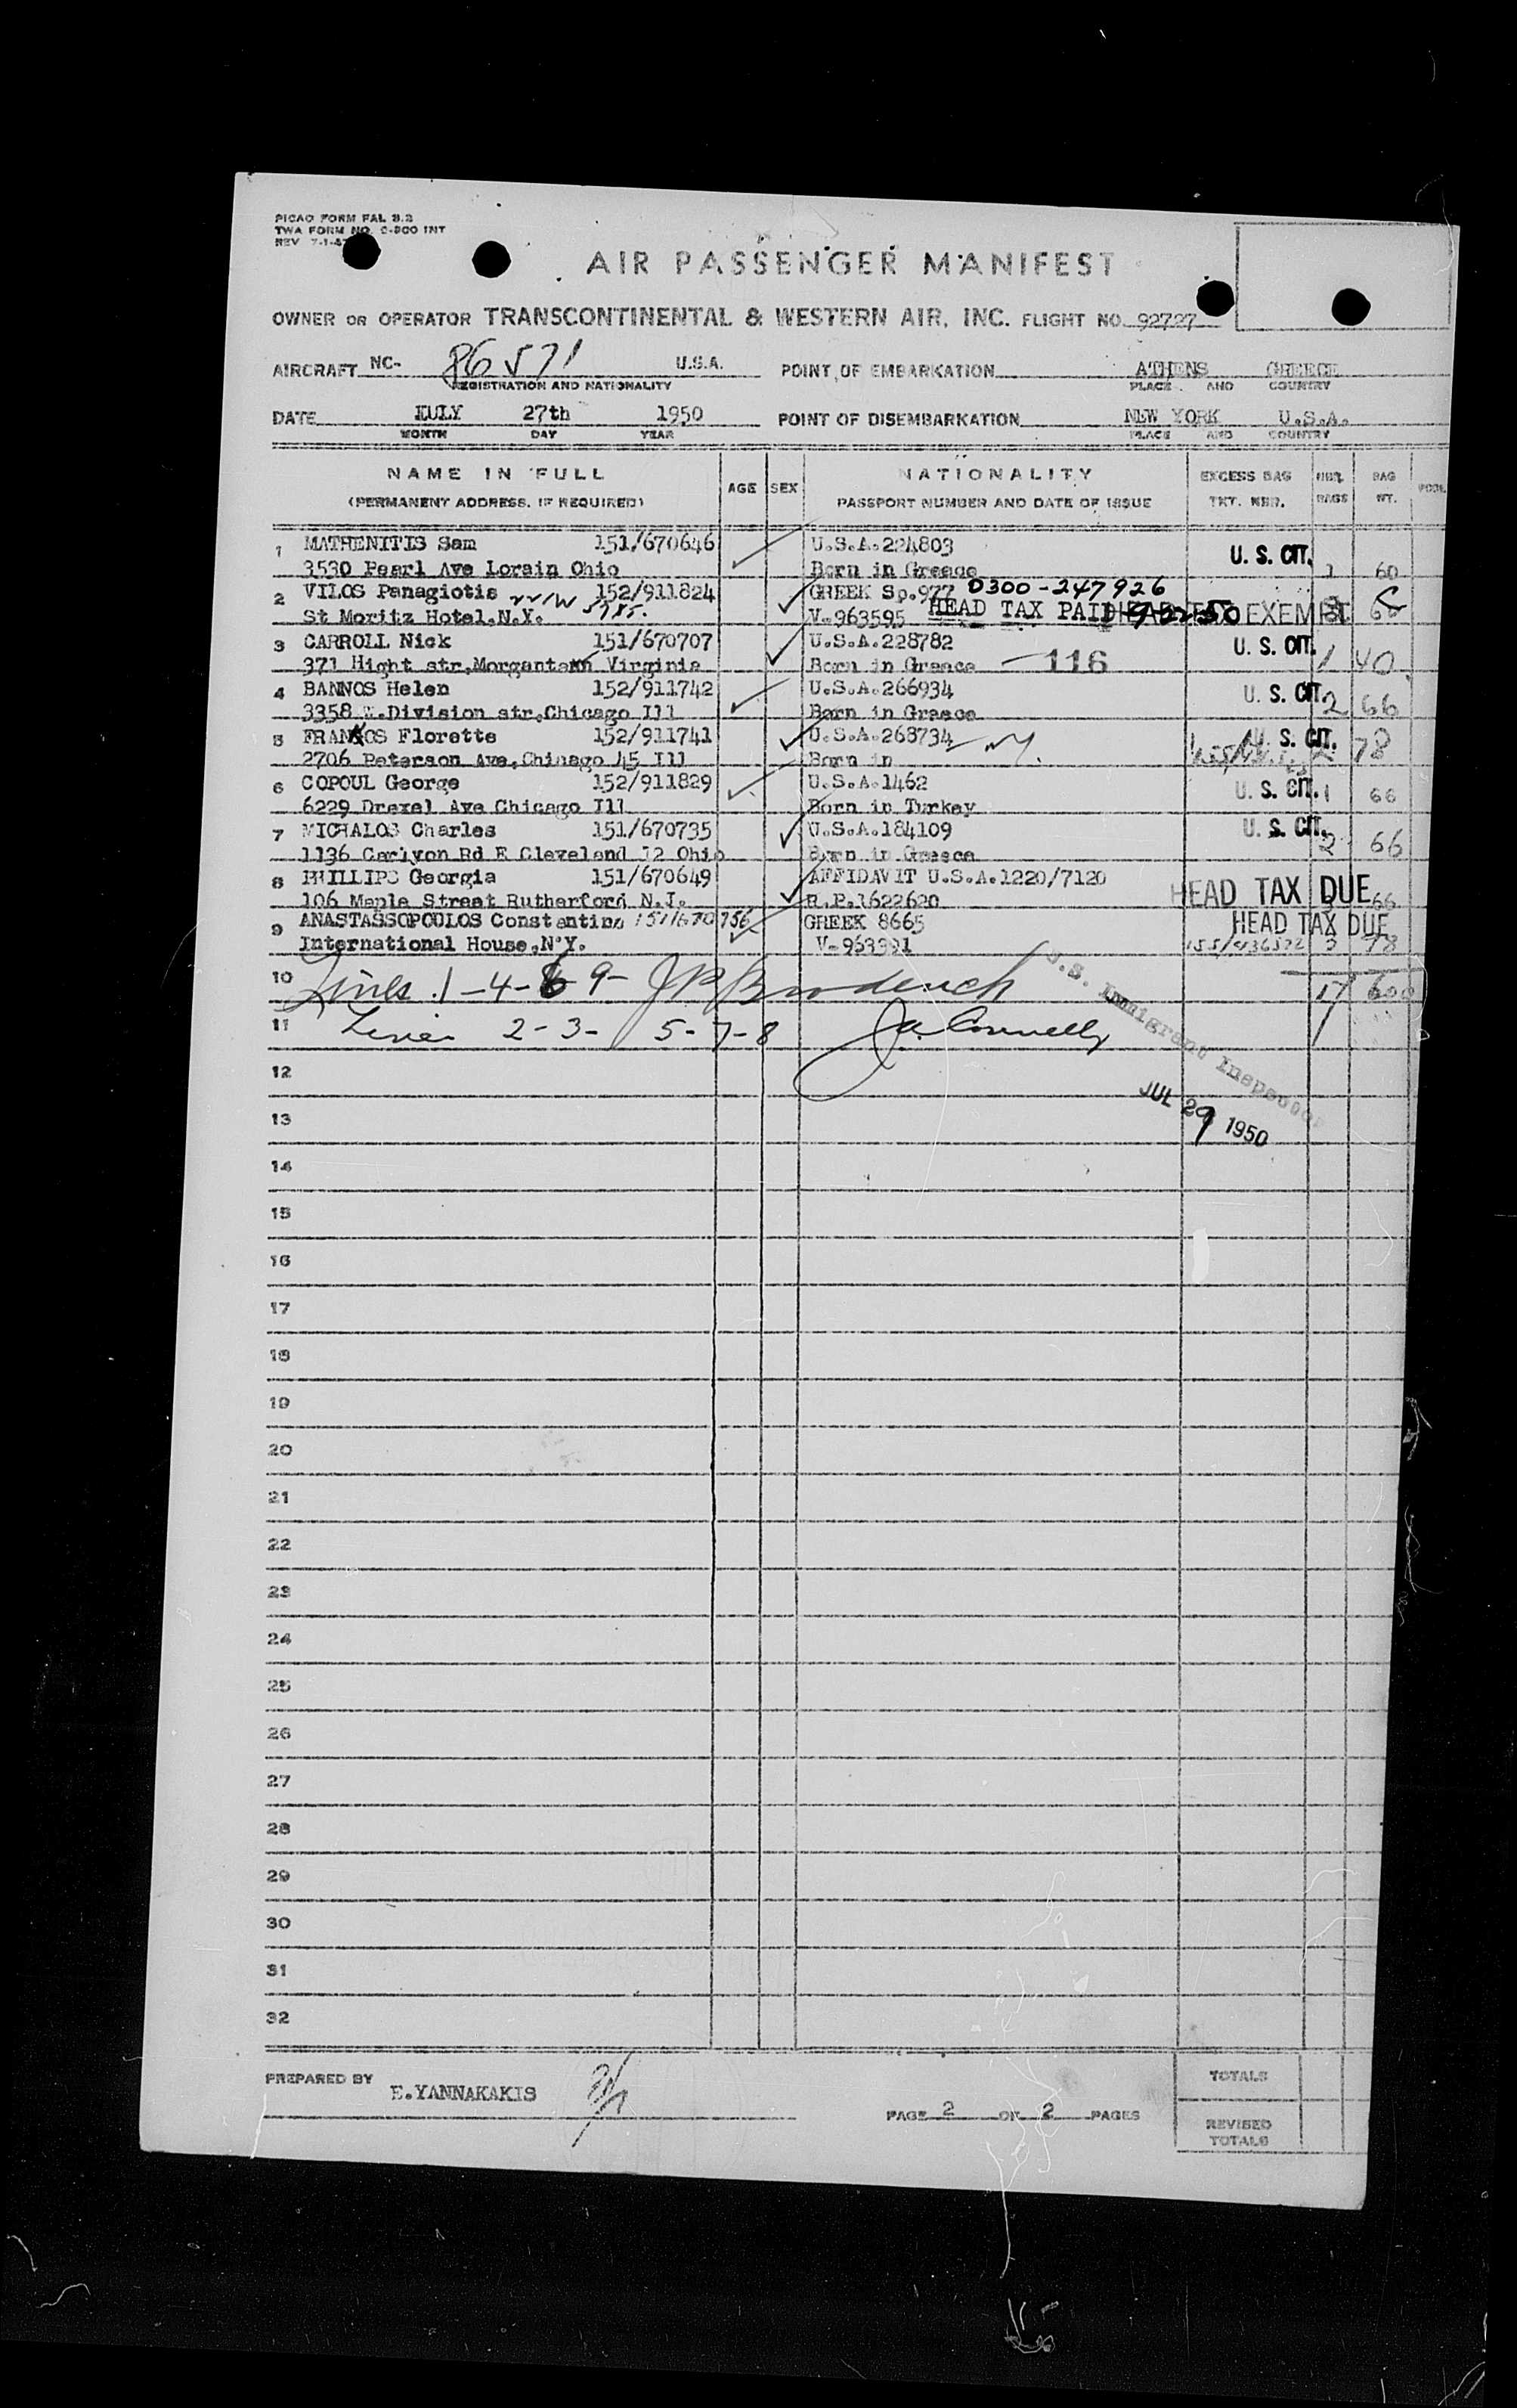 PICAO FORM FAL 3.2
TWA FORM NO. O-800 INT
REV 7-1-47
AIR PASSENGER MANIFEST
OWNER OR OPERATOR TRANSCONTINENTAL & WESTERN AIR, INC. FLIGHT NO. 92727
AIRCRAFT NC- 86571 U.S.A. POINT OF EMBARKATION ATHENS GREECE
REGISTRATION AND NATIONALITY PLACE AND COUNTRY
DATE JULY 27th 1950 POINT OF DISEMBARKATION NEW YORK U.S.A.
MONTH DAY YEAR PLACE AND COUNTRY
NAME IN FULL AGE SEX NATIONALITY EXCESS BAG NBR. BAG POOL
(PERMANENT ADDRESS, IF REQUIRED) PASSPORT NUMBER AND DATE OF ISSUE TKT. NBR. BAGS WT.
1 MATHENITIS Sam 151/670646 U.S.A.224803 U. S. CIT.
3530 Pearl Ave Lorain Ohio Born in Greece 60
2 VILOS Panagiotis 152/911824 GREEK Sp.977 0300-247926
St Moritz Hotel.N.Y. V-963595 HEAD TAX PAID HEAD TAX EXEMPT
3 CARROLL Nick 151/670707 U.S.A.228782 U. S. CIT.
371 Hight str,Morgantown Virginia Born in Greece -116 1 40
4 BANNOS Helen 152/911742 U.S.A.266934 U. S. CIT.
3358 W.Division str,Chicago Ill Born in Greece 2 66
5 FRANKOS Florette 152/911741 U.S.A.268734 U. S. CIT.
2706 Peterson Ave,Chicago 45 Ill Born in 2 78
6 COPOUL George 152/911829 U.S.A.1462 U. S. CIT.
6229 Drexel Ave Chicago Ill Born in Turkey 1 66
7 MICHALOS Charles 151/670735 U.S.A.184109 U. S. CIT.
1136 Carlyon Rd E Cleveland 12 Ohio Born in Greece 2 66
8 PHILLIPS Georgia 151/670649 AFFIDAVIT U.S.A.1220/7120
106 Maple Street Rutherford N.J. R.P.1622620 HEAD TAX DUE 66
9 ANASTASSOPOULOS Constantino 151/670756 GREEK 8665 HEAD TAX DUE
International House,N.Y. V-963391 3 78
10 Lines 1-4-6 9- JP Broderick 17 600
11 Lines 2-3- 5-7-8 Ja Connelly
U.S. Immigrant Inspector
12
JUL 29 1950
13
14
15
16
17
18
19
20
21
22
23
24
25
26
27
28
29
30
31
32
PREPARED BY E.YANNAKAKIS TOTALS
PAGE 2 OF 2 PAGES
REVISED TOTALS